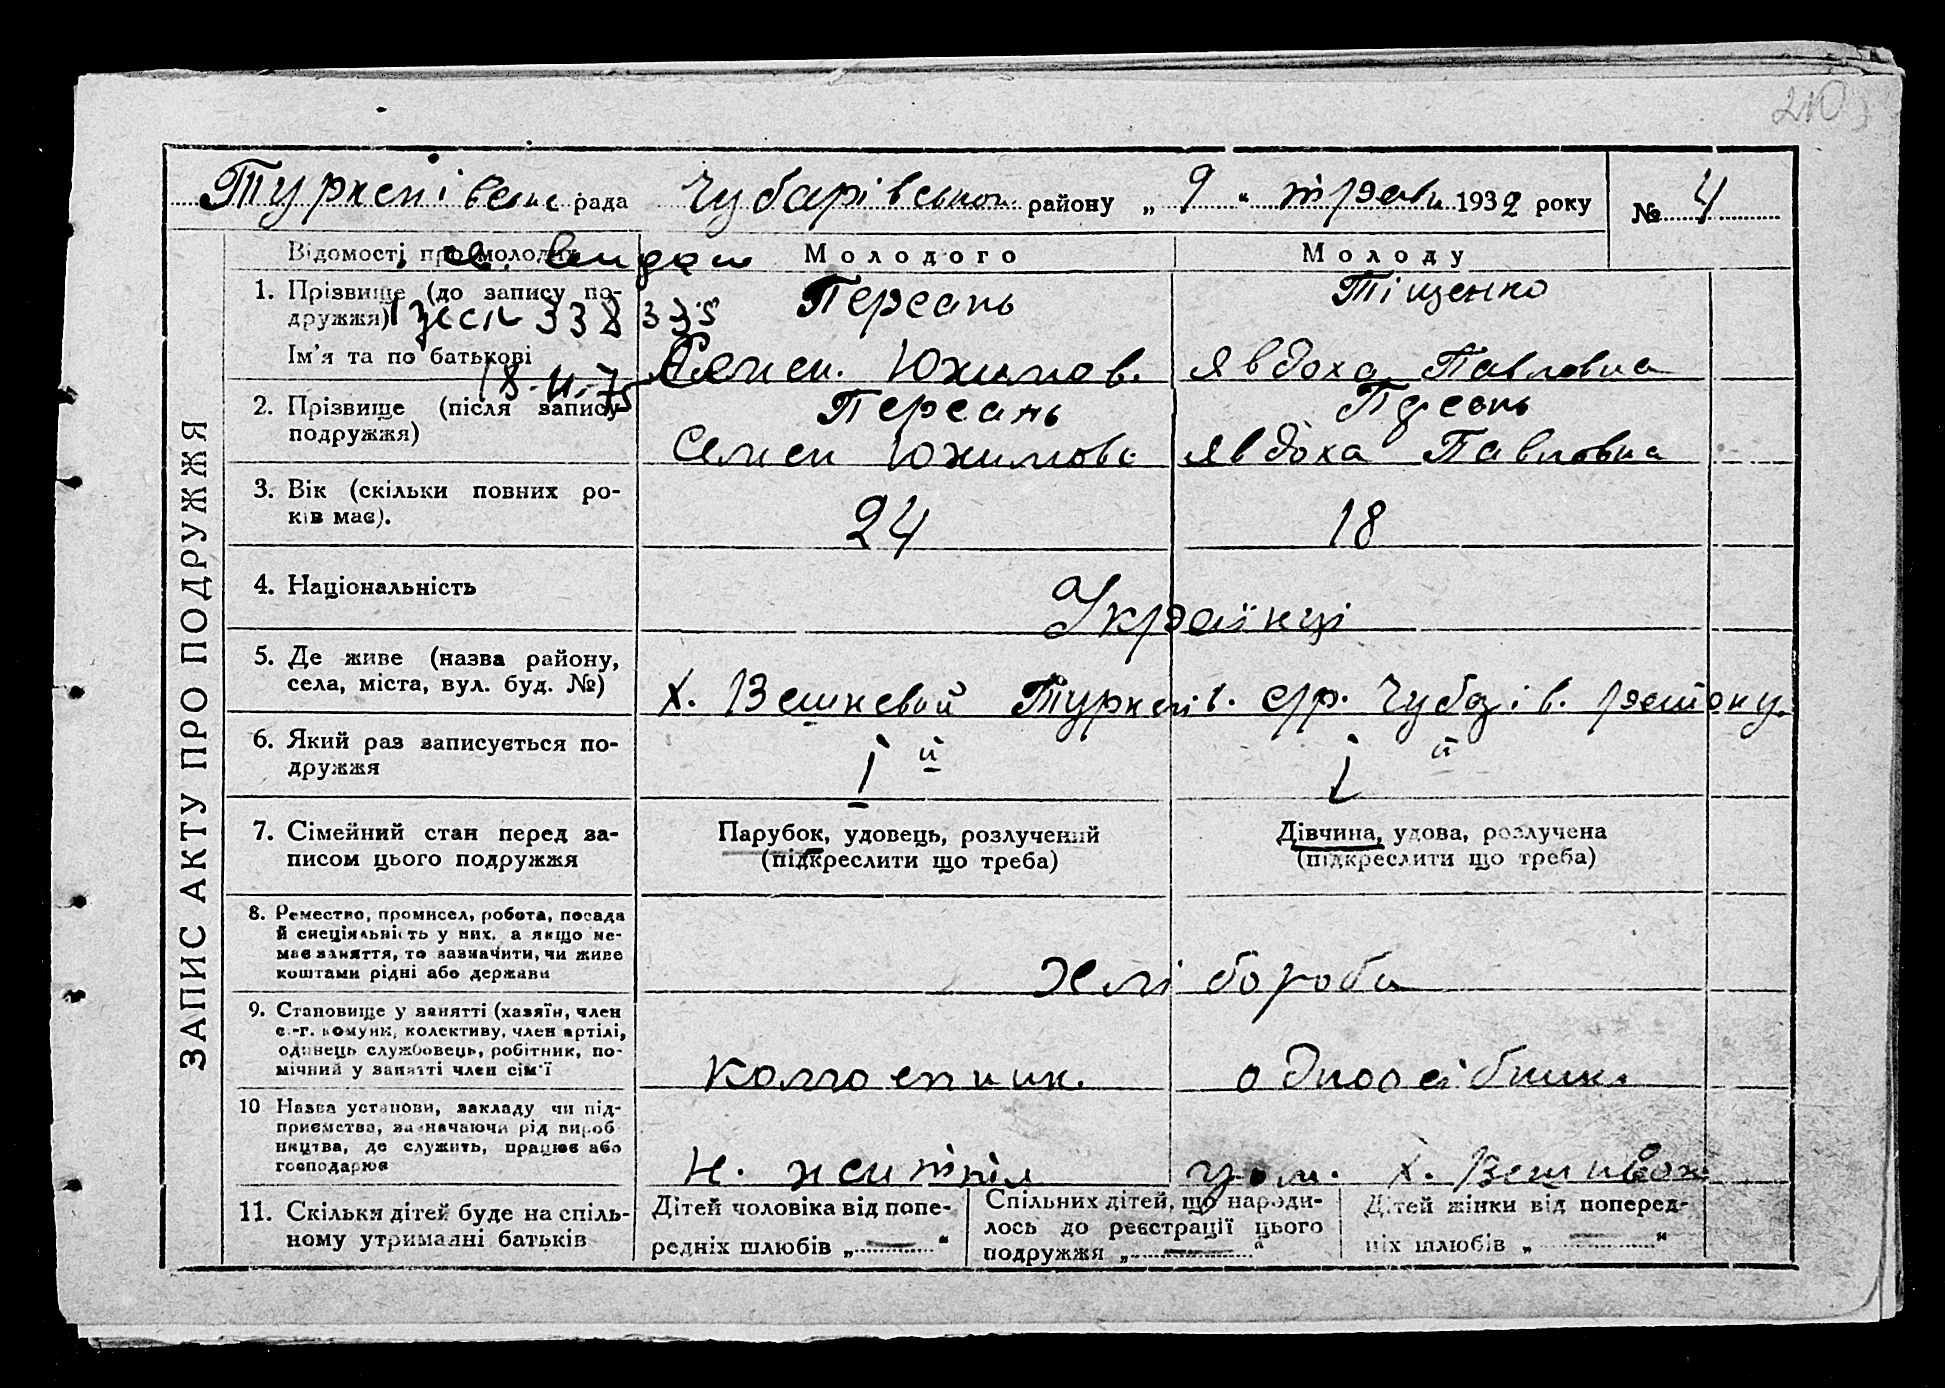 210
Туркенівськ рада Чубарівськог. району „ 9 “ травн 1932 року № 4
ЗАПИС АКТУ ПРО ПОДРУЖЖЯ
Відомості про молодих
Молодого
Молоду
1. Прізвище (до запису по-
дружжя)
Ім'я та по батькові
338335
18-II-75
Персань
Семен. Юхимов.
Тіщенко
Явдоха Павловна
2. Прізвище (після запису
подружжя)
Персань
Семен Юхимов
Персань
Явдоха Павловна
3. Вік (скільки повних ро-
ків має).
24
18
4. Національність
Українці
5. Де живе (назва району,
села, міста, вул. буд. №)
Х. Вешневий Туркенів. с/р. Чубарів. району.
6. Який раз записується по-
дружжя
І й
І й
7. Сімейний стан перед за-
писом цього подружжя
Парубок, удовець, розлучений
(підкреслити що треба)
Дівчина, удова, розлучена
(підкреслити що треба)
8. Ремество, промисел, робота, посада
й спеціяльність у них, а якщо не-
має заняття, то зазначити, чи живе
коштами рідні або держави
Хлібороби
9. Становище у занятті (хазяїн, член
с.-г. комуни, колективу, член артілі,
одинець службовець, робітник, по-
мічний у занятті член сім'ї
колгоспник.
одноосібник.
10 Назва установи, закладу чи під-
приємства, зазначаючи рід вироб
ництва, де служить, працює або
господарює
Н. життя
х.
11. Скільки дітей буде на спіль-
ному утриманні батьків
Дітей чоловіка від попе-
редніх шлюбів „ — “
Спільних дітей, що народи-
лось до реєстрації цього
подружжя „ — “
Дітей жінки від поперед-
ніх шлюбів „ — “